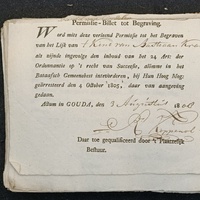 Permissie-Billet tot Begraving.
Word met deze verleend Permissie tot het Begraven
van het Lijk van 't Kind van
als zijnde ingevolge den inhoud van het 24 Art: der
Ordonnantie op 't recht van Successie, alomme in het
Bataafsch Gemeenebest intevorderen, bij Hun Hoog Mog:
geärresteerd den 4 October 1805, daar van aangeving
gedaan.
Actum in GOUDA, den 3 Augustus 180
Daar toe gequalificeerd door 't Plaatselijk
Bestuur.